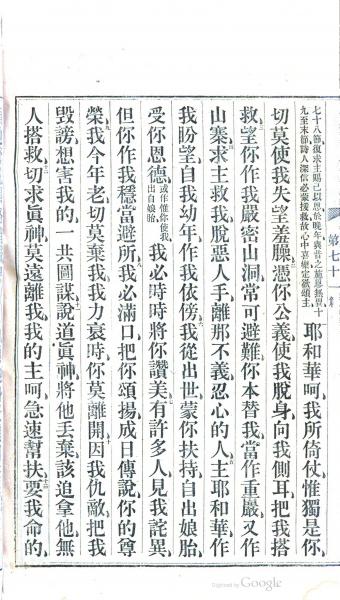 第七十一篇
七十八節復求主賜己以恩於晚年與昔之施恩無異十
九至末節詩人深信必蒙援救故心中喜樂定欲頌主
耶和華呵我所倚仗惟獨是你
切莫使我失望羞臊憑你公義使我脫身向我側耳把我搭
救望你作我嚴密山洞常可避難你本替我當作重巖又作
山寨求主救我脫惡人手離那不義忍心的人主耶和華作
我盼望自我幼年作我依傍我從出世蒙你扶持自出娘胎
受你恩德或作惟你使我出自娘胎我必時時將你讚美有許多人見我詫異
但你作我穩當避所我必滿口把你頌揚成日傳說你的尊
榮我今年老切莫棄我我力衰時你莫離開因我仇敵把我
毀謗想害我的一共圖謀說道眞神將他丟棄該追拿他無
人搭救切求眞神莫遠離我我的主呵急速幫扶要我命的
Digitized by Google